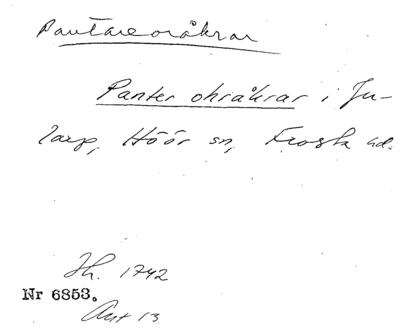 Pantareoråkrar
Panter ohråkrar i Ju-
larp, Höör sn, Frosta hd.
Jh. 1742
Nr 6853.
Akt 13